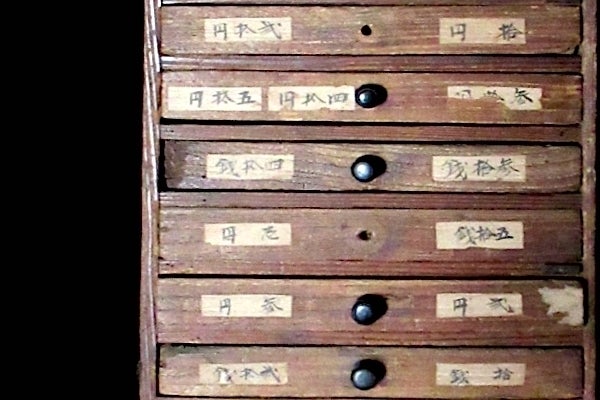 拾円
弐拾円
参拾円
四拾円
五拾円
参拾銭
四拾銭
五拾銭
壱円
弐円
参円
拾銭
弐拾銭